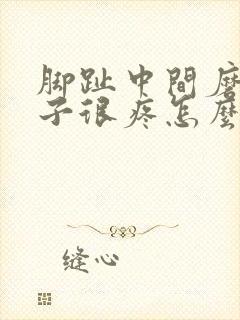 脚趾中間磨
子很疼怎麼
缝心